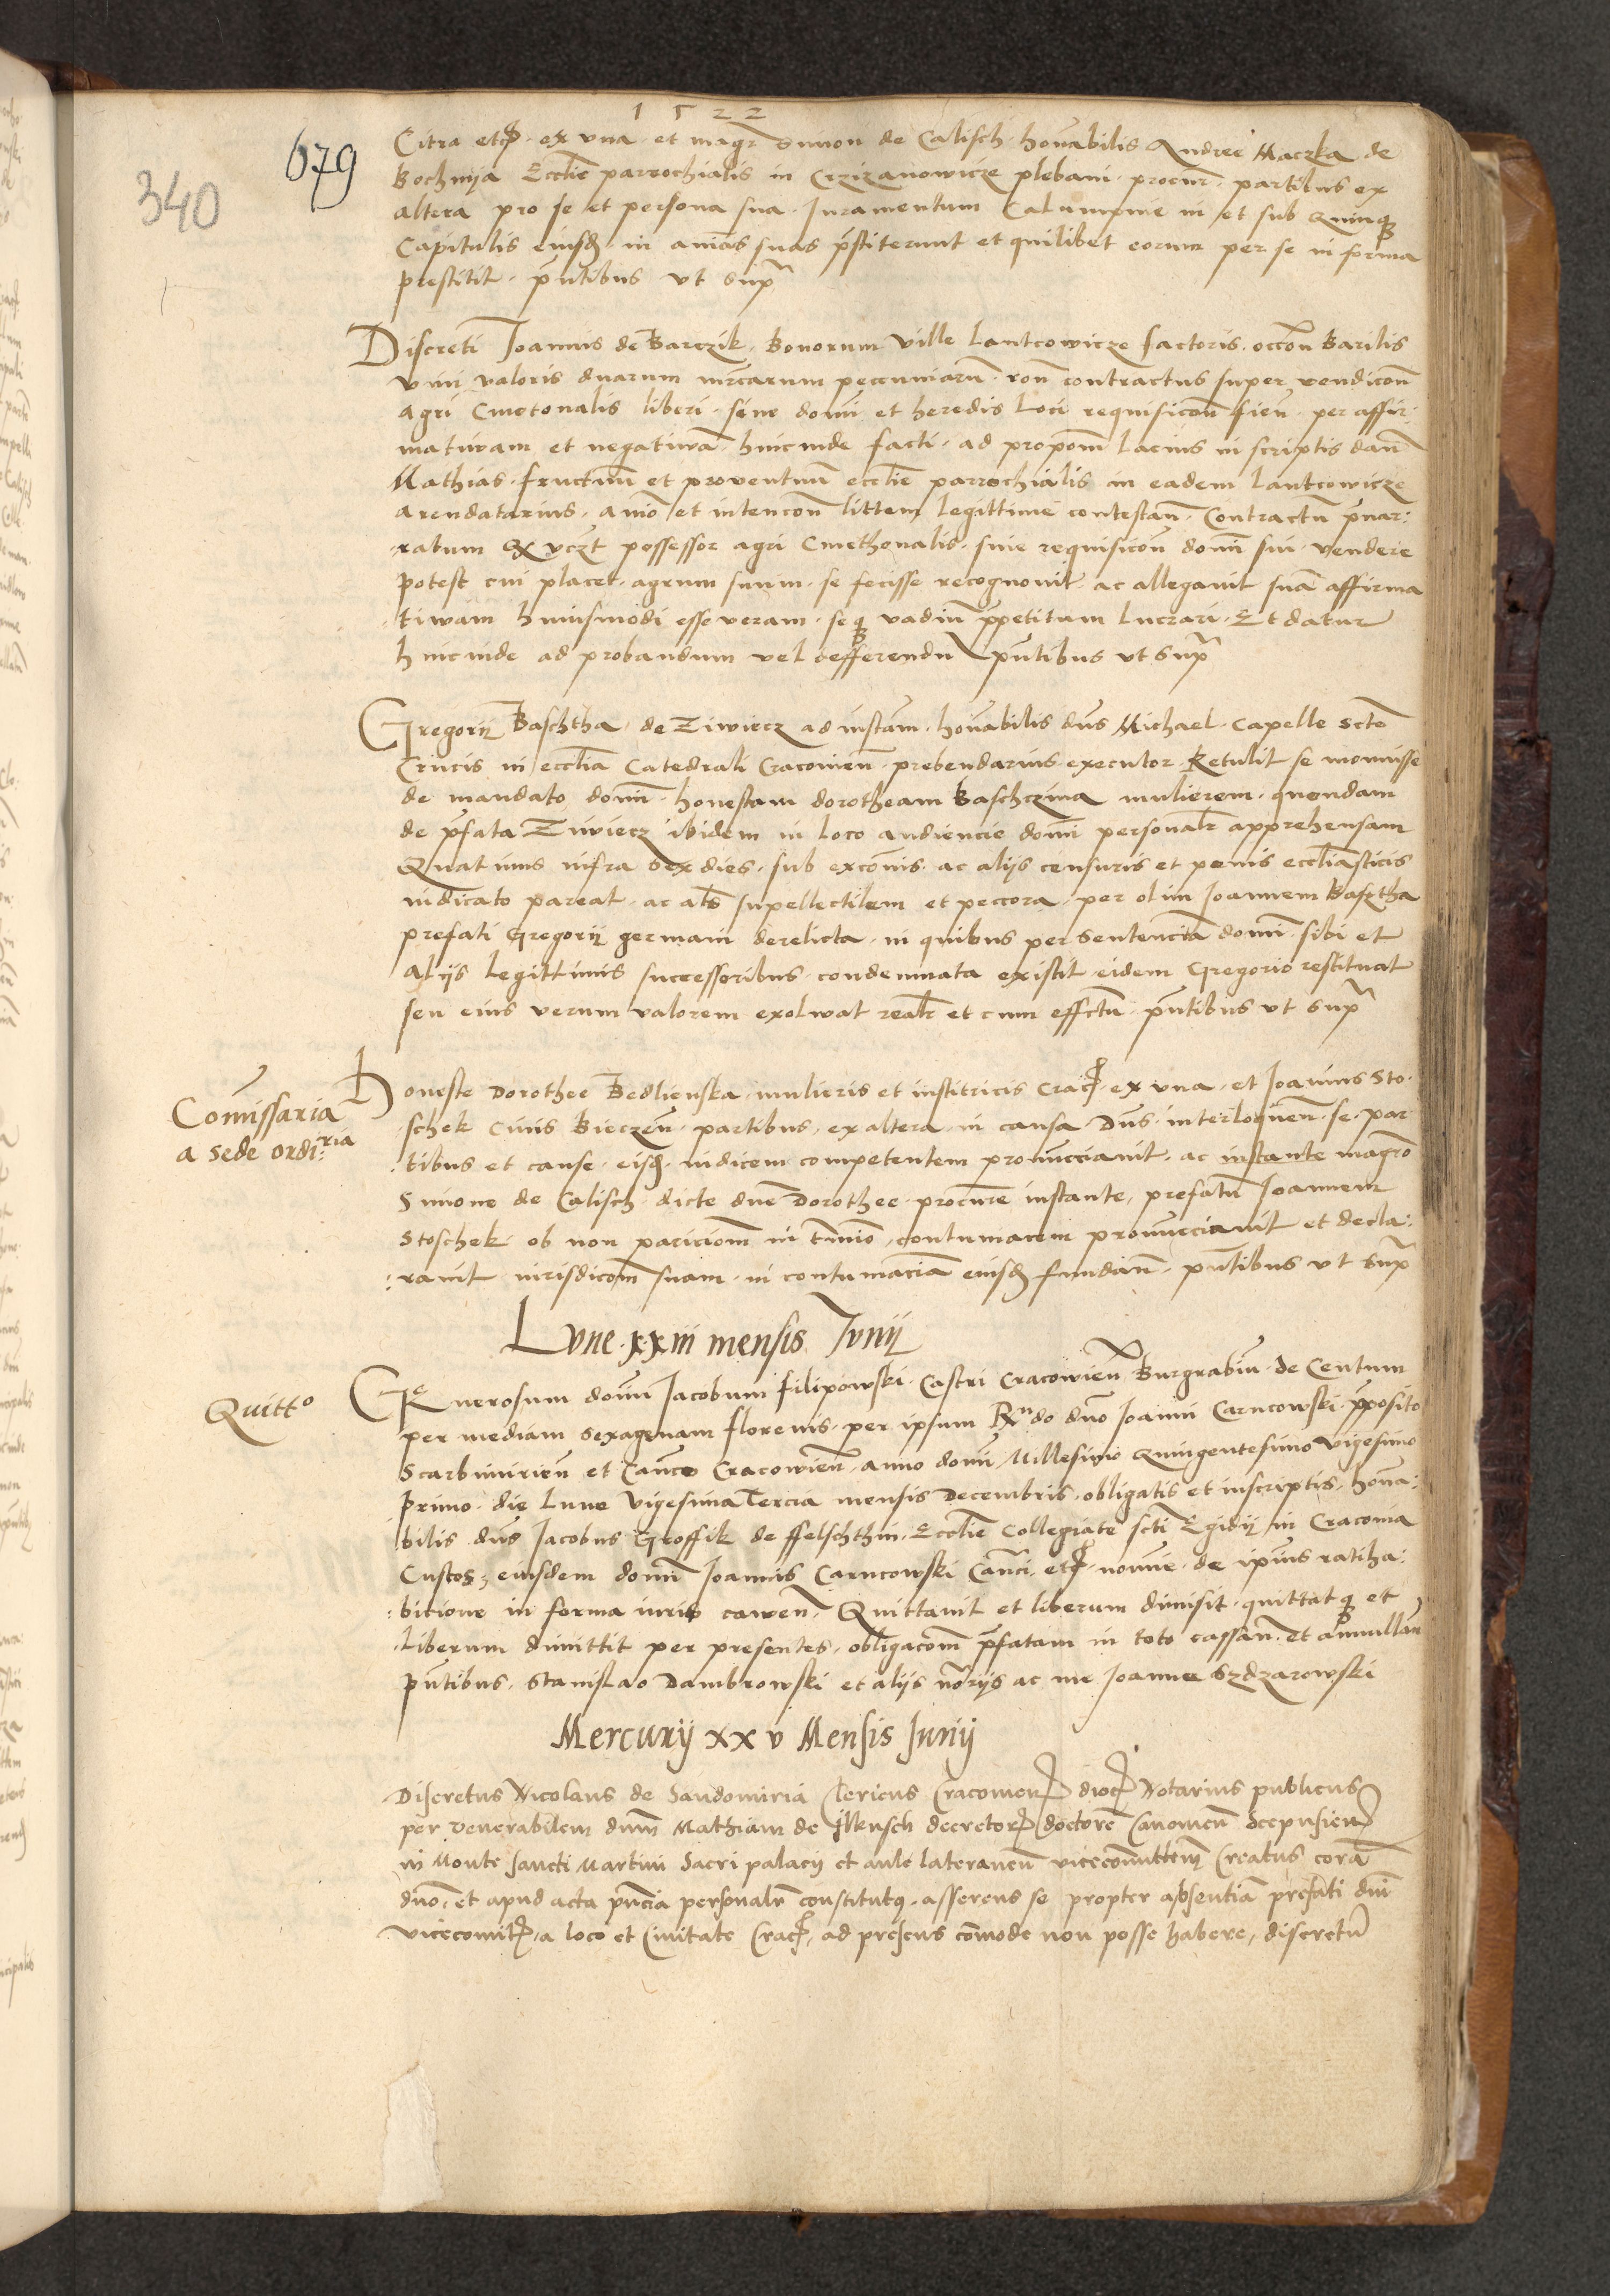 1522
679
340
Citra etc. ex vna et magr Simon de Calisch honabilis Andree Maczka de
Bochnija Ecclie parrochialis in Crzizanowicze plebani procur. partibus ex
altera pro se et persona sua Iuramentum Calumpnie in et sub Quinq
Capitulis eiusd. in aniās suas p̄stiterunt et quilibet eorum per se in forma
prestitit p̄ntibus vt sup̄
Discreti Joannis de Barczik Bonorum ville Lantcowicze factoris occōn Barilis
vini valoris duarum mrcarum peccuniarū rōn contractus super vendicōn
agri Cmetonalis liberi sine domi et heredis Loci requisicōn fien per affir:
matiwam et negatiwā hincinde facti ad propōm Lacius in scriptis dan
Mathias fructuum et proventuū ecclie parrochialis in eadem Lantcowicze
arendatarius aniō et intencōn littem Legittime contestan Contractū p̄nar:
ratum Ex vczt possessor agri Cmethonalis sine requisicōn domi sui vendere
potest cui placet agrum suum se fecisse recognovit ac allegavit suā affirma
tiwam huiusmodi esse veram seq vadiū p̄petitum Lucrari Et datur
hincinde ad probandum vel defferendū p̄ntibus vt sup̄
Gregorij Baschtha de Ziwiecz ad instam honabilis dns Michael Capelle scte
Crucis in ecclia Catedrali Cracovien prebendarius executor Retulit se monuisse
de mandato domi honestam dorotheam Baschczina mulierem quondam
de p̄fata Ziwiecz ibidem in loco audiencie domi personalr apprehensam
Quatinus infra sex dies sub excōmis ac alijs censuris et penis eccliasticis
iudicato pareat ac als supellectilem et peccora per olim Joannem Basztha
prefati Gregorij germani derelicta in quibus per sentenciā domi sibi et
alijs Legittimis successoribus condemnata existit eidem Gregorio restituat
seu eius verum valorem exolwat realr et cum effctu p̄ntibus vt sup̄
Comissaria
a sede ordi:ria
Honeste Dorothee Bedlienska mulieris et institricis Crac ex vna et Joannis Sto
schek Civis Bieczen partibus ex altera in causa Dns interloquen se par
tibus et cause eisd. iudicem competentem pronuncciavit ac instante magro
Simone de Calisch dicte dne Dorothee procure instante prefatū Joannem
Stoschek ob non pariciom in tmino contumacem pronuncciavit et decla:
:ravit iurisdicom suam in contumaciā eiusd fundan p̄ntibus vt sup̄
Lune xxiii mensis Junij
Quitto
Generosum domi Jacobum filipowski Castri Cracovien Burgrabiū de Centum
per mediam sexagenam florenis per ipsum Rndo dno Joanni Carncowski p̄posito
Scarbimirien et Canco Cracovien anno domi Millesimo Quingentesimo vigesimo
primo die Lune vigesima tercia mensis Decembris obligatis et inscriptis hona:
bilis dns Jacobus Groffik de ffelschthin Ecclie Collegiate scti Egidij in Cracovia
Custos, eiusdem domi Joannis Carncowski Canci etc nomine de ipius ratiha:
:bicione in forma iuris caven Quittavit et liberum dimisit quittatq et
liberum dimittit per presentes obligacom p̄fatam in toto cassan et annullan
p̄ntibus Stanislao Dambrowski et alijs norijs ac me Joanne Szdzarowski
Mercurij xxv Mensis Junij
Discretus Nicolaus de Sandomiria Clericus Cracovien dioc Notarius publicus
per venerabilem dnm Mathiam de Ilkusch decretor doctore Canonicū Scepusien
in Monte Sancti Martini Sacri palacij et aule lateranen vicecomittem Creatus corā
dno et apud acta p̄ncia personalr constitutus asserens se propter absentiā prefati dni
vicecomit a loco et Civitate Crac ad presens comode non posse habere, discretū